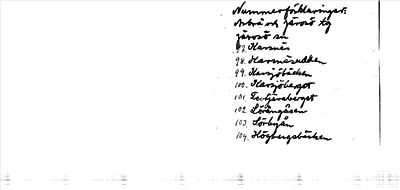 Nummerförklaringar:
Arbrå och Järvsö tg
Järvsö sn
97. Harsnäs
98. Harsnäsudden
99. Harsjöbäcken
100. Harsjöberget
101. Tevtjärnsberget
102. Löråsen
103. Lörbyån
104. Högbergsbäcken